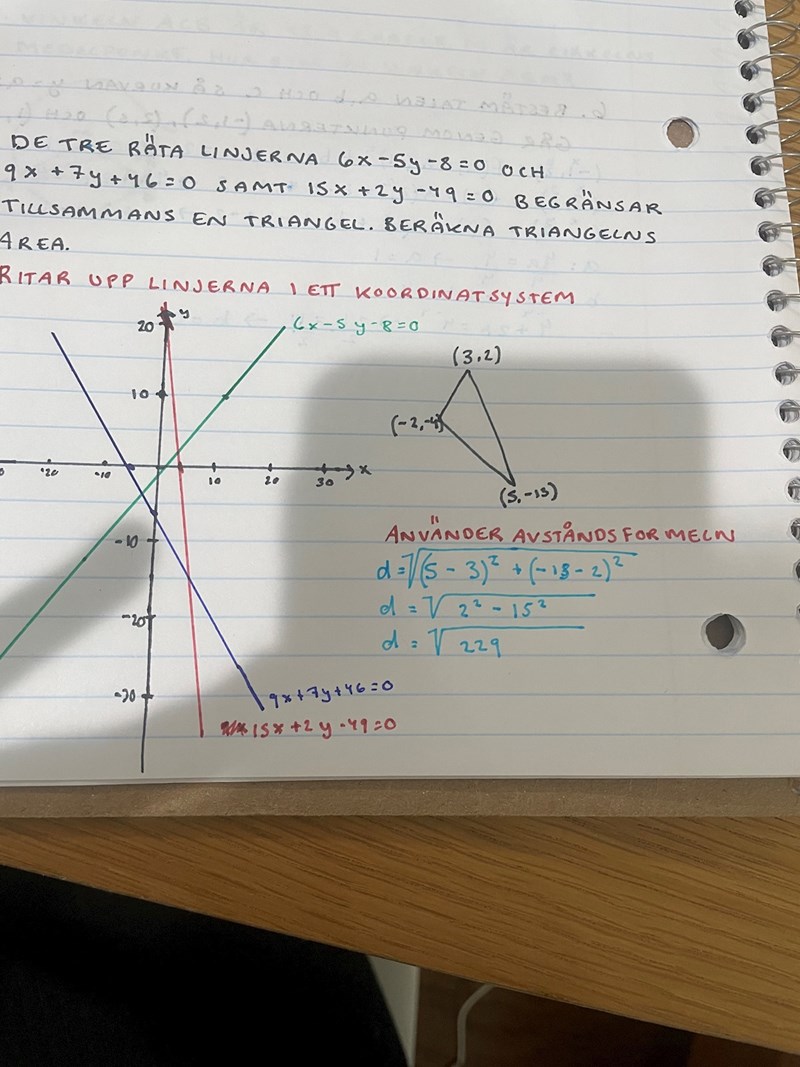 DE TRE RÄTA LINJERNA 6x-5y-8=0 OCH
9x+7y+46=0 SAMT 15x+2y-49=0 BEGRÄNSAR
TILLSAMMANS EN TRIANGEL. BERÄKNA TRIANGELNS
AREA.
RITAR UPP LINJERNA I ETT KOORDINATSYSTEM
y
20
6x-5y-8=0
10
-20 -10 10 20 30 x
-10
-20
-30
9x+7y+46=0
15x+2y-49=0
(3,2)
(-2,-4)
(5,-13)
ANVÄNDER AVSTÅNDSFORMELN
d=√(5-3)²+(-13-2)²
d=√2²-15²
d=√229